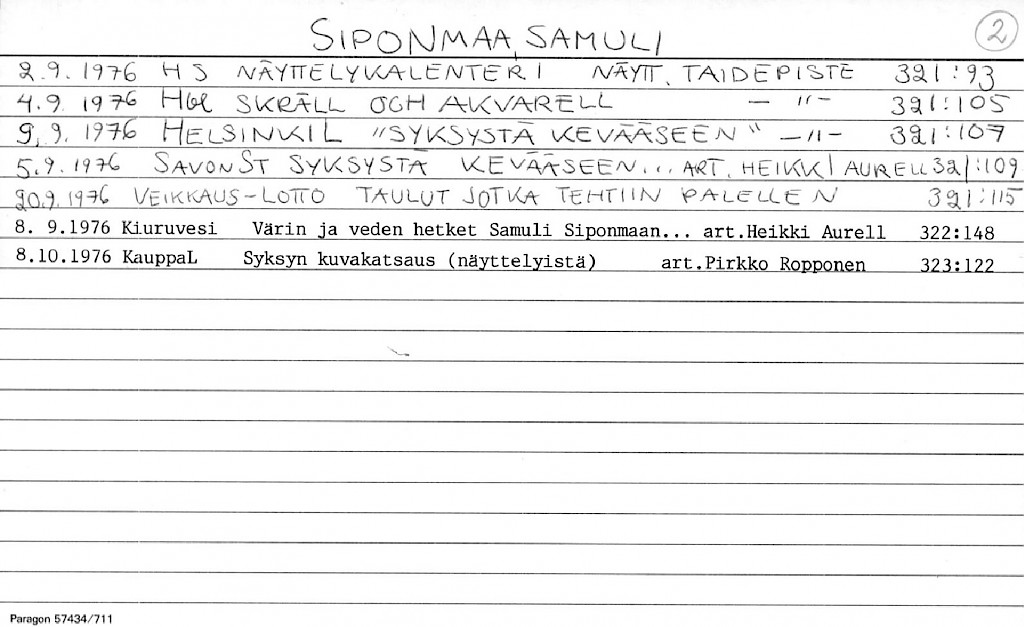 SIPONMAA, SAMULI 2
2.9.1976 HS NÄYTTELYKALENTERI NÄYTT. TAIDEPISTE 321:93
4.9.1976 Hbl SKRÄLL OCH AKVARELL — "— 321:105
9.9.1976 HELSINKIL "SYKSYSTÄ KEVÄÄSEEN" — "— 321:107
5.9.1976 SAVONST SYKSYSTÄ KEVÄÄSEEN... ART. HEIKKI AURELL 321:109
20.9.1976 VEIKKAUS-LOTTO TAULUT JOTKA TEHTIIN PALELLEN 321:115
8. 9.1976 Kiuruvesi Värin ja veden hetket Samuli Siponmaan... art.Heikki Aurell 322:148
8.10.1976 KauppaL Syksyn kuvakatsaus (näyttelyistä) art.Pirkko Ropponen 323:122
Paragon 57434/711